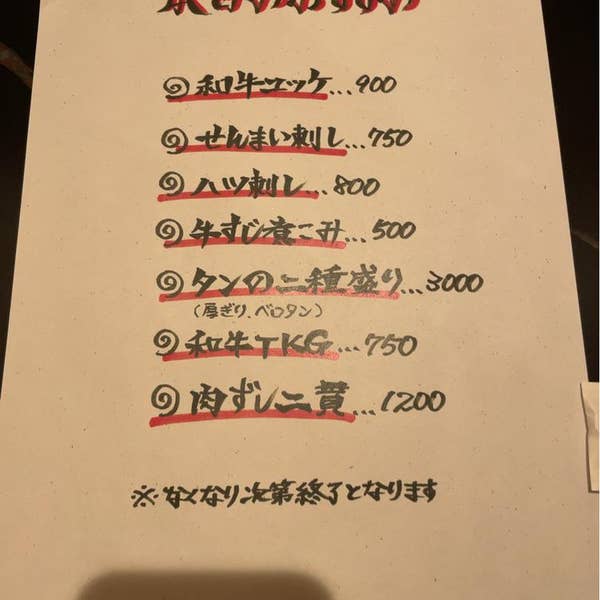 和牛ユッケ...900
せんまい刺し...750
ハツ刺し...800
牛すじ煮こみ...500
タンの二種盛り...3000
(厚ぎり、ベロタン)
和牛TKG...750
肉ずし二貫...1200
※なくなり次第終了となります